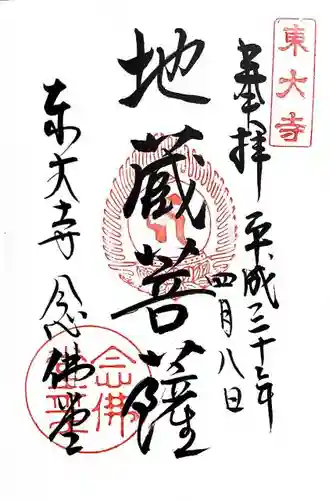 東大寺
奉拝
平成二十二年
四月八日
地蔵菩薩
東大寺 念佛堂
念佛